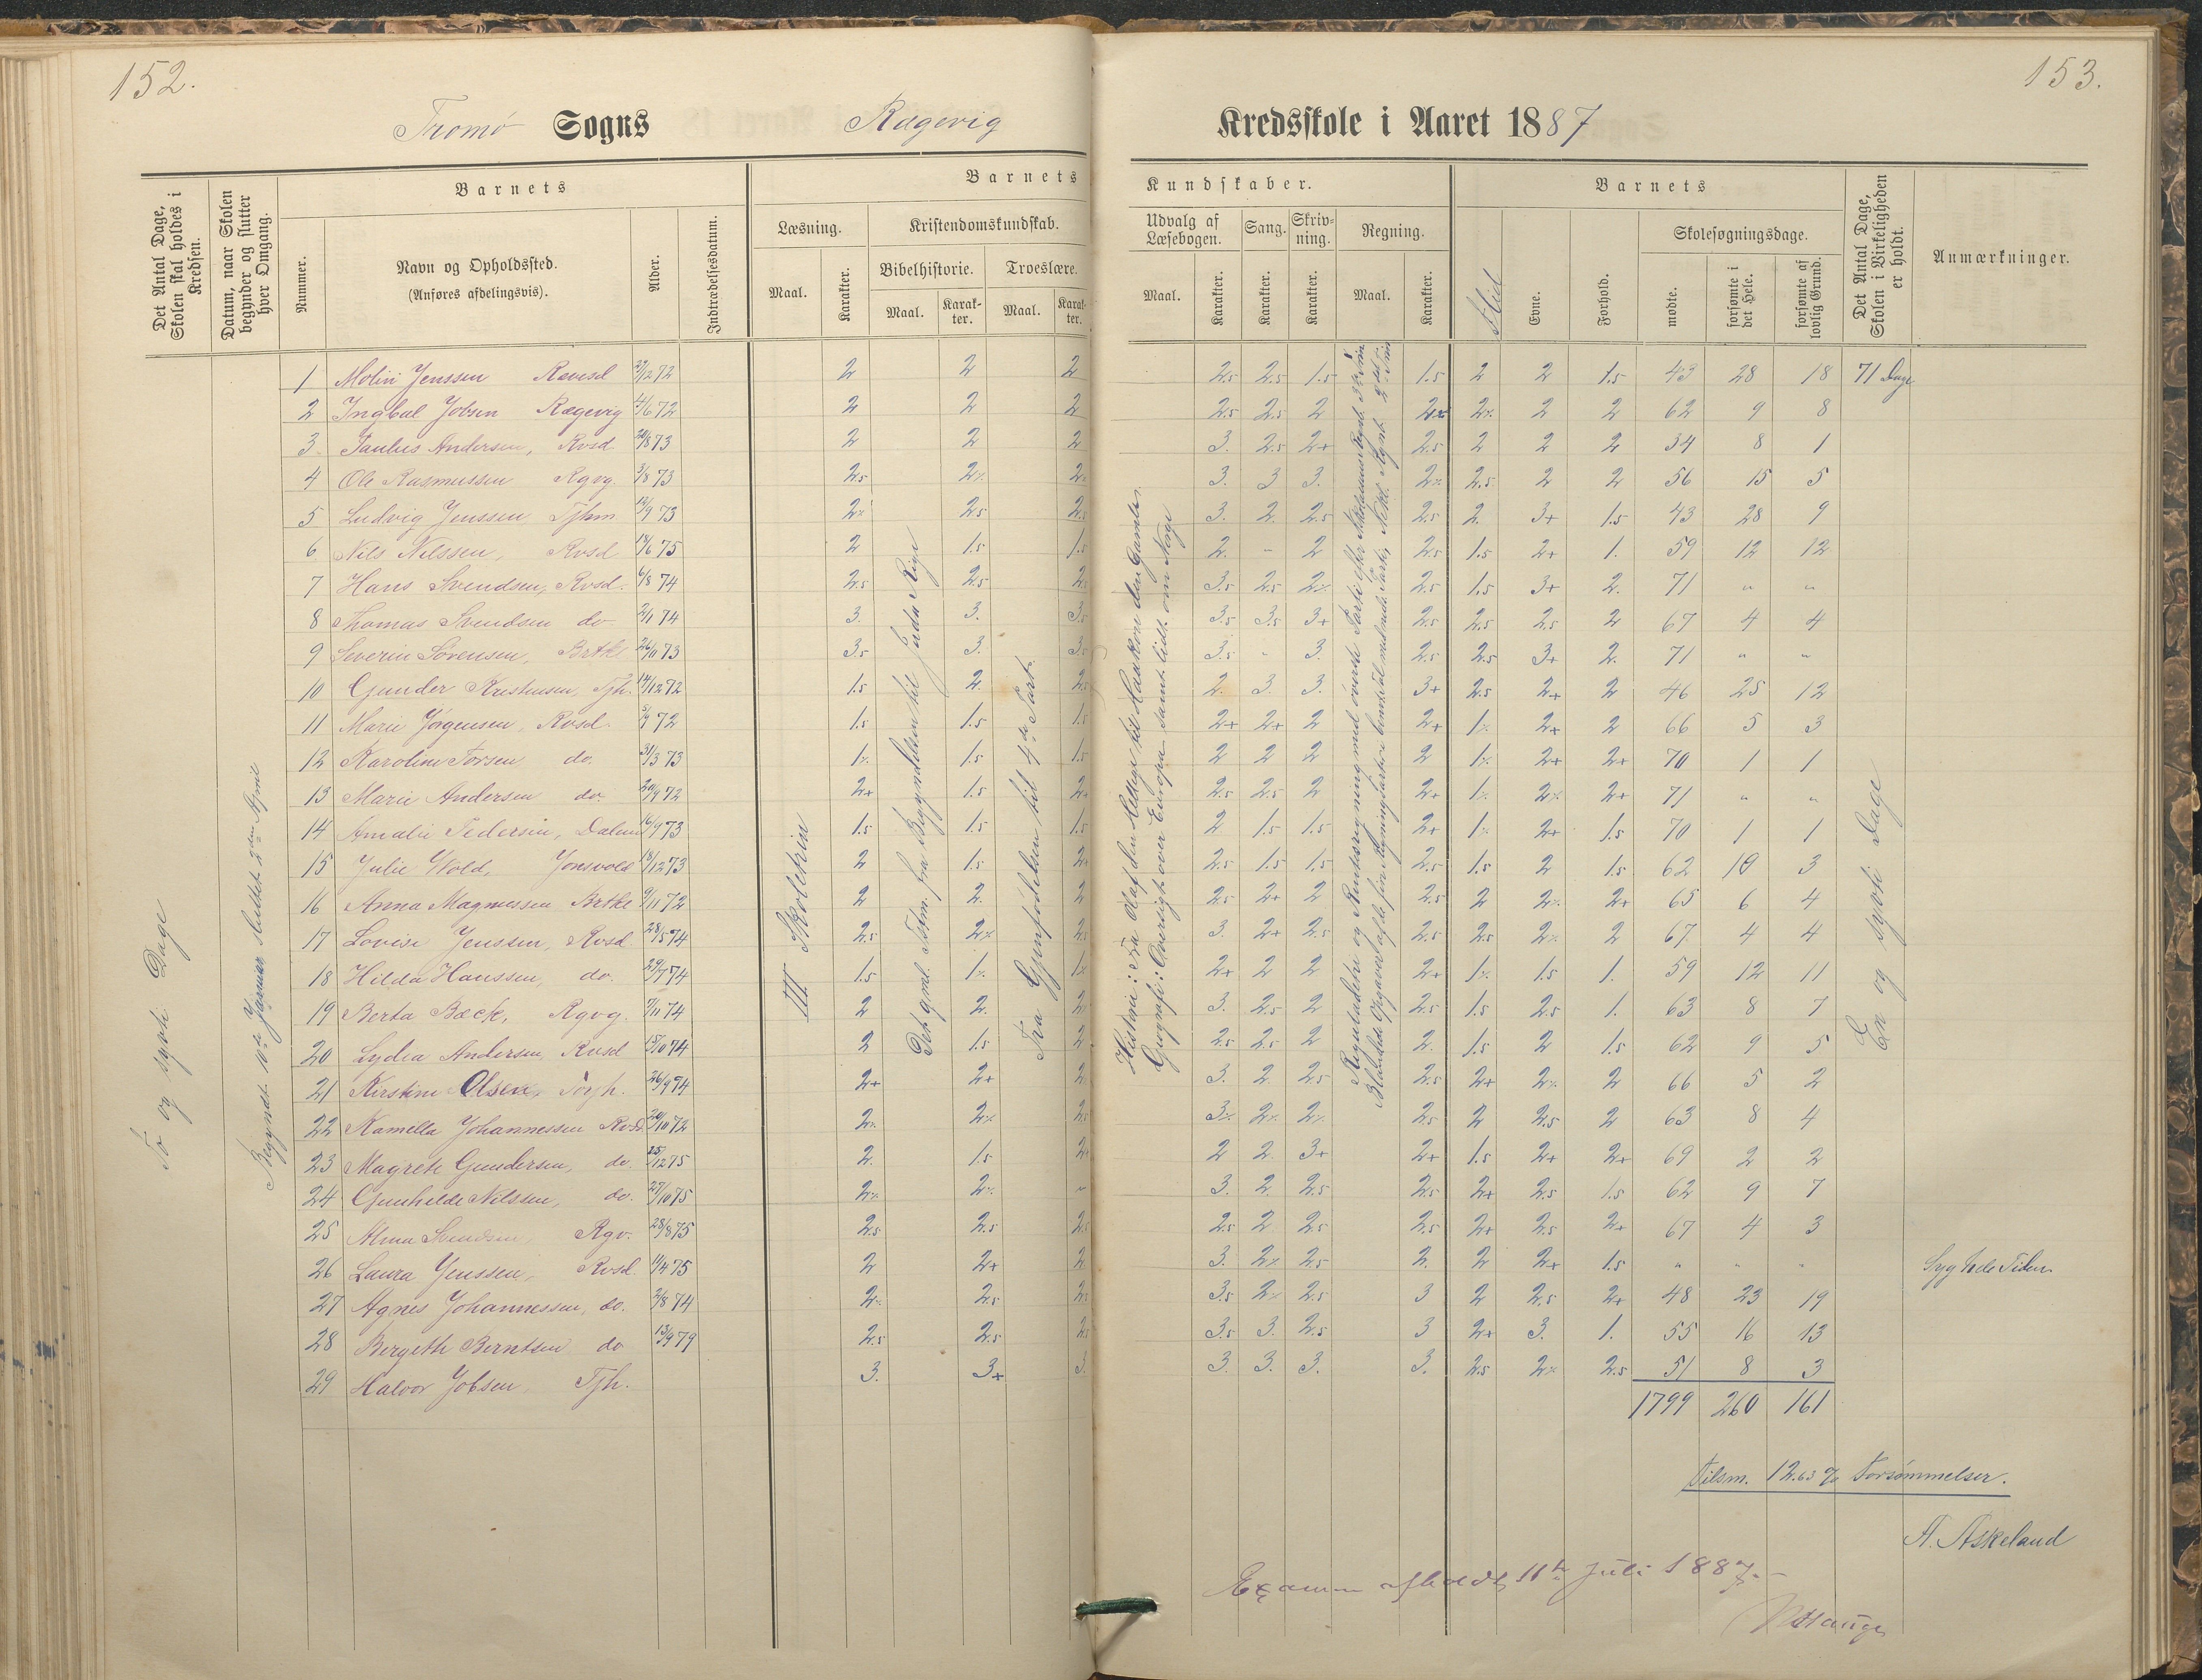 152.
153.
Tromø Sogns Rægevig Kredsskole i Aaret 1887
Det Antal Dage, Skolen skal holdes i Kredsen.
Datum, naar Skolen begynder og slutter hver Omgang.
Barnets
Nummer.
Navn og Opholdssted.
(Anføres afdelingsvis).
Alder.
Indtrædelsesdatum.
Barnets
Kundskaber.
Læsning.
Maal.
Karakter.
Kristendomskundskab.
Bibelhistorie.
Maal.
Karakter.
Troeslære.
Maal.
Karakter.
Udvalg af Læsebogen.
Maal.
Karakter.
Sang.
Karakter.
Skrivning.
Karakter.
Regning.
Maal.
Karakter.
Barnets
Flid
Evne.
Forhold.
Skolesøgningsdage.
mødte.
forsømte i det Hele.
forsømte af lovlig Grund.
Det Antal Dage, Skolen i Virkeligheden er holdt.
Anmærkninger.
To og sytti Dage
Begyndt 10de Januar sluttet 2den April
III Skoletrin
Det gml. Testm. fra Begyndelsen til Juda Rige
Fra Gjenfødelsen til 4de Part.
Historie: Fra Olaf den Hellige til Haakon den Gamle.
Geografi: Oversigt over Europa samt lidt om Norge
En og sytti Dage
1 Molin Jenssen Revesd 2 2 2 2.5 2.5 1.5 1.5 2 2 1.5 43 28 18 71 Dage
2 Ingbal Jobsen Rægevig 4/6 72 2 2 2 2.5 2.5 2 2 2 62 9 8
3 Paulus Andersen, Rvsd 2 2 2 3. 2.5 2+ 2.5 2 2 2 34 8 1
4 Ole Rasmussen Rgvg. 3/8 73 2.5 3. 3 3. 2.5 2 2 56 15 5
5 Ludvig Jenssen Tjhm 2.5 3. 2. 2.5 2.5 2. 3+ 1.5 43 28 9
6 Nils Nilssen, Rvsd 2 1.5 1.5 2. - 2 2.5 1.5 2+ 1. 59 12 12
7 Hans Svendsen, Rvsd. 6/8 74 2.5 2.5 3.5 2.5 2.5 1.5 3+ 2. 71 " "
8 Thomas Svendsen do. 2/1 74 3. 3. 3.5 3.5 3.5 3+ 2.5 2.5 2.5 2 67 4 4
9 Severin Sørensen, Brtke 26/11 73 3.5 3. 3.5 3.5 " 3. 2.5 2.5 3+ 2. 71 " "
10 Gunder Kristensen, Tjh. 14/12 72 1.5 2. 2.5 2. 3. 3. 3+ 2.5 2+ 2 46 25 12
11 Marie Jørgensen, Rvsd. 1.5 1.5 1.5 2+ 2+ 2 2+ 2+ 2 66 5 3
12 Karoline Torsen do. 31/3 73 1.5 1.5 2 2 2 2 2+ 2+ 70 1 1
13 Marie Andersen do. 20/9 72 2+ 1.5 2+ 2.5 2.5 2 2+ 2+ 71 " "
14 Amalie Pedersen, Dalen 1.5 1.5 1.5 2 1.5 1.5 2+ 2+ 1.5 70 1 1
15 Julie Wold, Jonsvold 2 1.5 2+ 2.5 1.5 1.5 2.5 1.5 2 1.5 62 10 3
16 Anna Magnussen Brtke 9/11 72 2 2. 2 2.5 2+ 2 2.5 2 2+ 65 6 4
17 Lovise Jenssen, Rvsd. 28/5 74 2.5 2.5 3. 2+ 2.5 2.5 2.5 2 67 4 4
18 Hilda Hanssen, do. 29/7 74 1.5 2+ 2 2 2+ 1.5 1. 59 12 11
19 Berta Bæck, Rgvg. 7/11 74 2 2. 2 3. 2.5 2 2.5 1.5 2.5 1. 63 8 7
20 Lydia Andersen, Rvsd 2 1.5 2 2.5 2.5 2 2. 1.5 2 1.5 62 9 5
21 Kirstine Olsen, 26/9 74 2+ 2+ 3. 2. 2.5 2.5 2+ 2 66 5 2
22 Kamella Johannessen Rvsd 20/10 72 2.5 2.5 2 2.5 2 63 8 4
23 Magrete Gundersen, do. 25/12 75 2. 1.5 2+ 2 2. 3+ 2+ 1.5 2+ 2+ 69 2 2
24 Gunhelde Nilssen, do. 27/10 75 3. 2. 2.5 2.5 2+ 2.5 1.5 62 9 7
25 Alma Svendsen, Rgv. 28/8 75 2.5 2.5 2.5 2.5 2 2.5 2.5 2+ 2.5 2+ 67 4 3
26 Laura Jenssen, Rvsd. 2 2+ 2 3. 2.5 2. 2 2+ 1.5 " " " Syg hele Tiden
27 Agnes Johannessen, do. 2/8 74 2.5 2.5 3.5 2.5 3 2 2.5 2+ 48 23 19
28 Bergeth Berntsen do 13/9 79 2.5 2.5 2.5 3.5 3. 2.5 3 2+ 3. 1. 55 16 13
29 Halvor Jobsen Tjh. 3. 3+ 3. 3. 3. 3. 3. 2.5 2.5 51 8 3
1799 260 161
Tilsm. 12.63 % Forsømmelser.
A. Askeland
Examen afholdt 11te Juli 1887.
Hauge